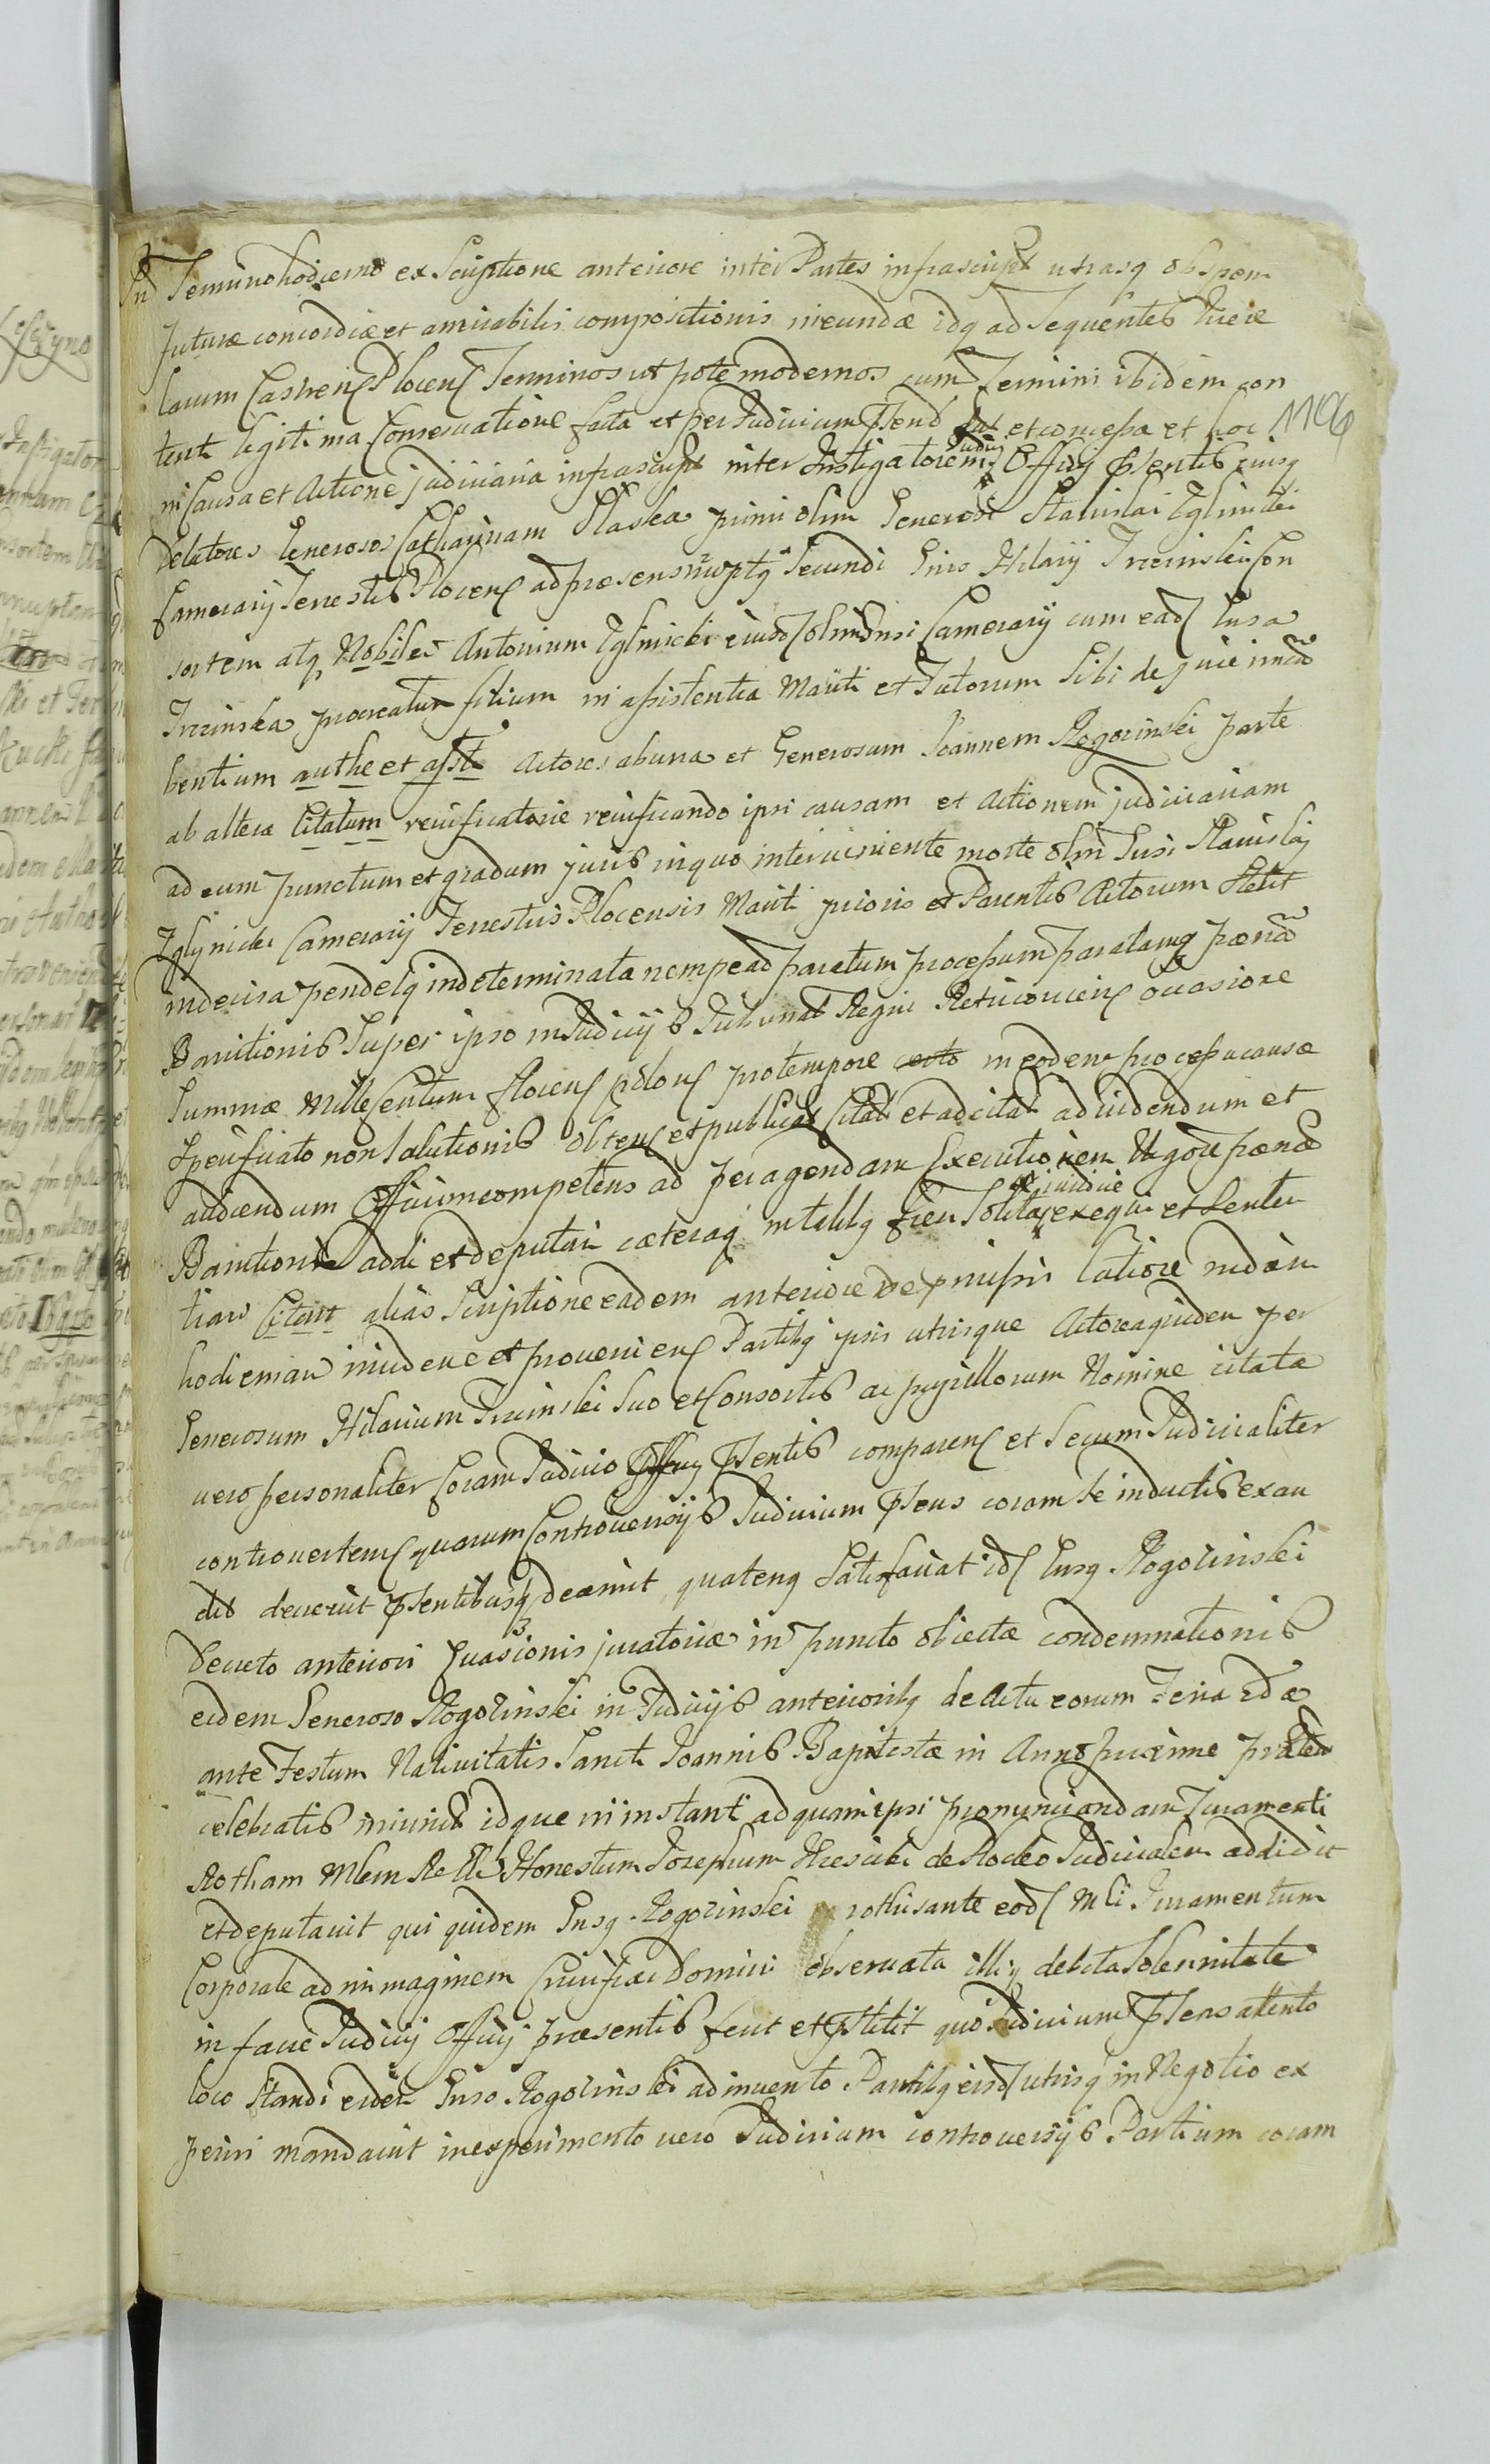 In Termino hodierno ex Scriptione anteriore inter Partes infrascript utrasq ob spem
futuræ concordiæ et amicabilis compositionis ineundæ idq ad Sequentes
larum Castren Plocen Terminos ut pote modernos cum Termini ibidem con
tent legitima Conservatione facta et per Judicium Psens et concessa et hoc
1106
in Causa et Actione judiciaria infrascript inter Instigatorem Judicij Officij Psentis eiusq
Delatores Generosos Catharinam primi olim Generosi Stanislai Zglinicki
Camerarij Terrestris Plocen ad præsens nuptq Secundi Gnis Hilarij Trzcinski Con
sortem atq Nobilem Antonium Zglinicki eiusd olim Gnsi Camerarij cum ead Gnsa
Trzcinska procreatum filium in assistentia Mariti et Tutorum Sibi de jure
bentium authe et asste Actores ab una et Generosum Joannem Rogozinski parte
ab altera Citatum reinficatorie reinficando ipsi causam et Actionem judiciariam
ad eum punctum et gradum juris in quo interveniente morte olim Gnsi Stanislaj
Zglynicki Camerarij Terrestris Plocensis Mariti prioris et Parentis Actorum Stetit
indecisa pendetq indeterminata nempe ad paratum processum paratamq pœnam
Banitionis Super ipso in Judicijs Tribunal Regni Petricovien occasione
Summæ Mille Centum floren polon pro tempore certo in eodem processu causæ
Specificato non Solutionis obten et publicat Citat et adcitat ad videndum et
audiendum Officium competens ad peragendam Executionem Vigore pœnæ
Banitionis addi et deputari cæteraq in talibq fieri Solita judicie exequi et Senten
tiam Citant alias Scriptione eadem anteriore de præmissis latiore in diem
hodiernam incidene et provenien Partibq ipsis utrisque Actorea quidem per
Generosum Hilarium Trzcinski Suo et Consortis ac pupillorum Nomine citata
vero personaliter Coram Judicio Officij Psentis comparen et Secum Judicialiter
controverten quarum Controversijs Judicium Psens coram Se inductis exau
dis decrevit Psentibusq decernit quatenq Satisfaciat id Gnsq Rogozinski
Decreto anteriori Evasionis juratoriæ in puncto objectæ condemnationis
eidem Generoso Rogozinski in Judicijs anterioribq de Actu eorum Feria 2dæ
ante Festum Nativitatis Sancti Joannis Baptistæ in Anno proxime præter
celebratis iniunct idque in instanti ad quam ipsi pronunciandam Juramenti
Rotham Mlem Relle Honestum Josephum de Plocko Judicialem addidit
et deputavit qui quidem Gnsq Rogozinski rothisante eod Mli Juramentum
Corporale ad immaginem Crucifixi Domini observata illiq debita Solennitate
in facie Judicij Officij præsentis fecit et Pstitit quo Judicium Psens attento
loco Standi eidem Gnso Rogozinski adinvento Partibq eisd utrisq in Negotio ex
periri mandavit in experimento vero Judicium controversijs Partium coram